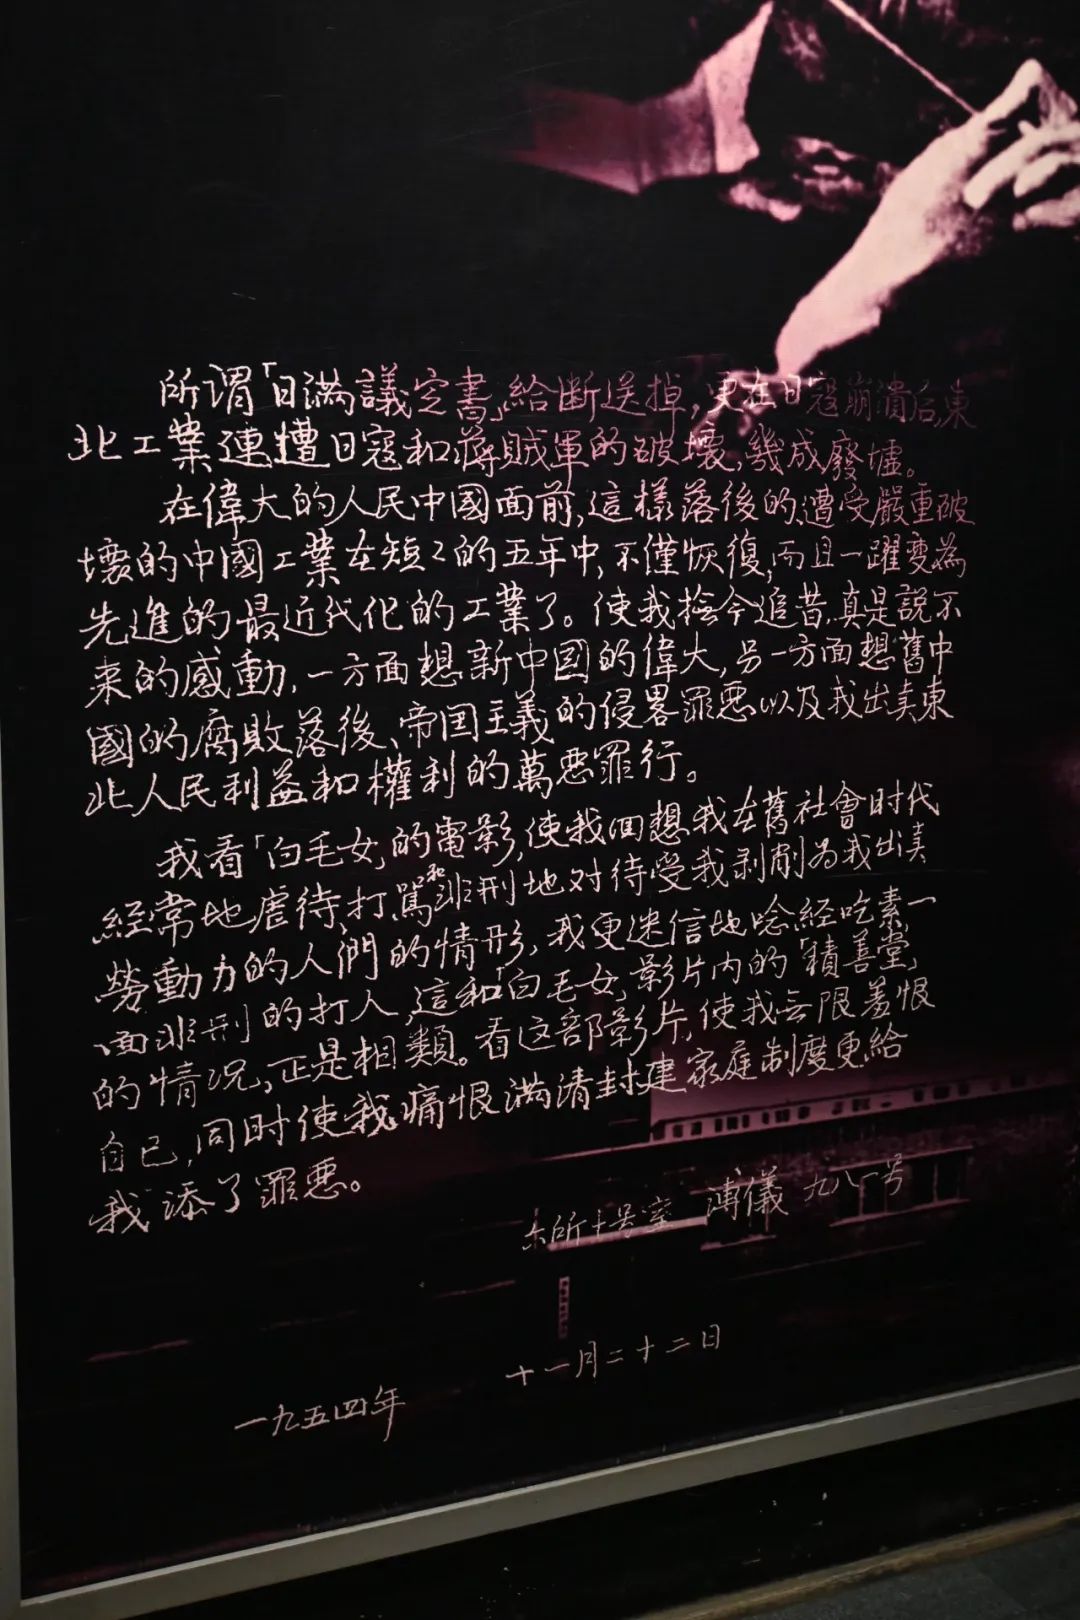 所谓「日满議定書」給断送掉，更在日寇崩潰后，東
北工業連遭日寇和蔣贼軍的破壞，幾成廢墟。
在偉大的人民中國面前，這樣落後的、遭受嚴重破
壞的中國工業在短々的五年中，不僅恢復，而且一躍变為
先進的最近代化的工業了。使我撿今追昔，真是説不
来的感動，一方面想新中國的偉大，另一方面想舊中
國的腐敗落後、帝国主義的侵畧罪悪以及我出卖東
北人民利益和權利的萬悪罪行。
我看「白毛女」的電影，使我回想我在舊社會时代
経常地虐待、打駡和非刑地对待受我剥削为我出卖
勞動力的人們的情形，我更迷信地唸經吃素一
面非刑的打人，這和「白毛女」影片内的「積善堂」
的情况，正是相類。看这部影片，使我無限羞恨
自己，同时使我痛恨满清封建家庭制度更給
我添了罪悪。
东所十号室 溥儀 九八一号
十一月二十二日
一九五四年